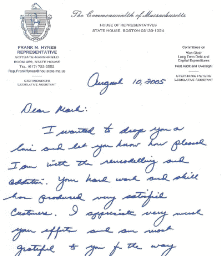 The Commonwealth of Massachusetts
HOUSE OF REPRESENTATIVES
STATE HOUSE, BOSTON 02133-1054
FRANK M. HYNES
REPRESENTATIVE
STATE HOUSE
Committees on
August 10, 2005
Dear Mark:
I wanted to drop you a
line and let you know how pleased
I am with the remodelling and
addition. Your hard work and skill
have produced very satisfied
Customers. I appreciate very much
your efforts and am most
grateful to you for the way